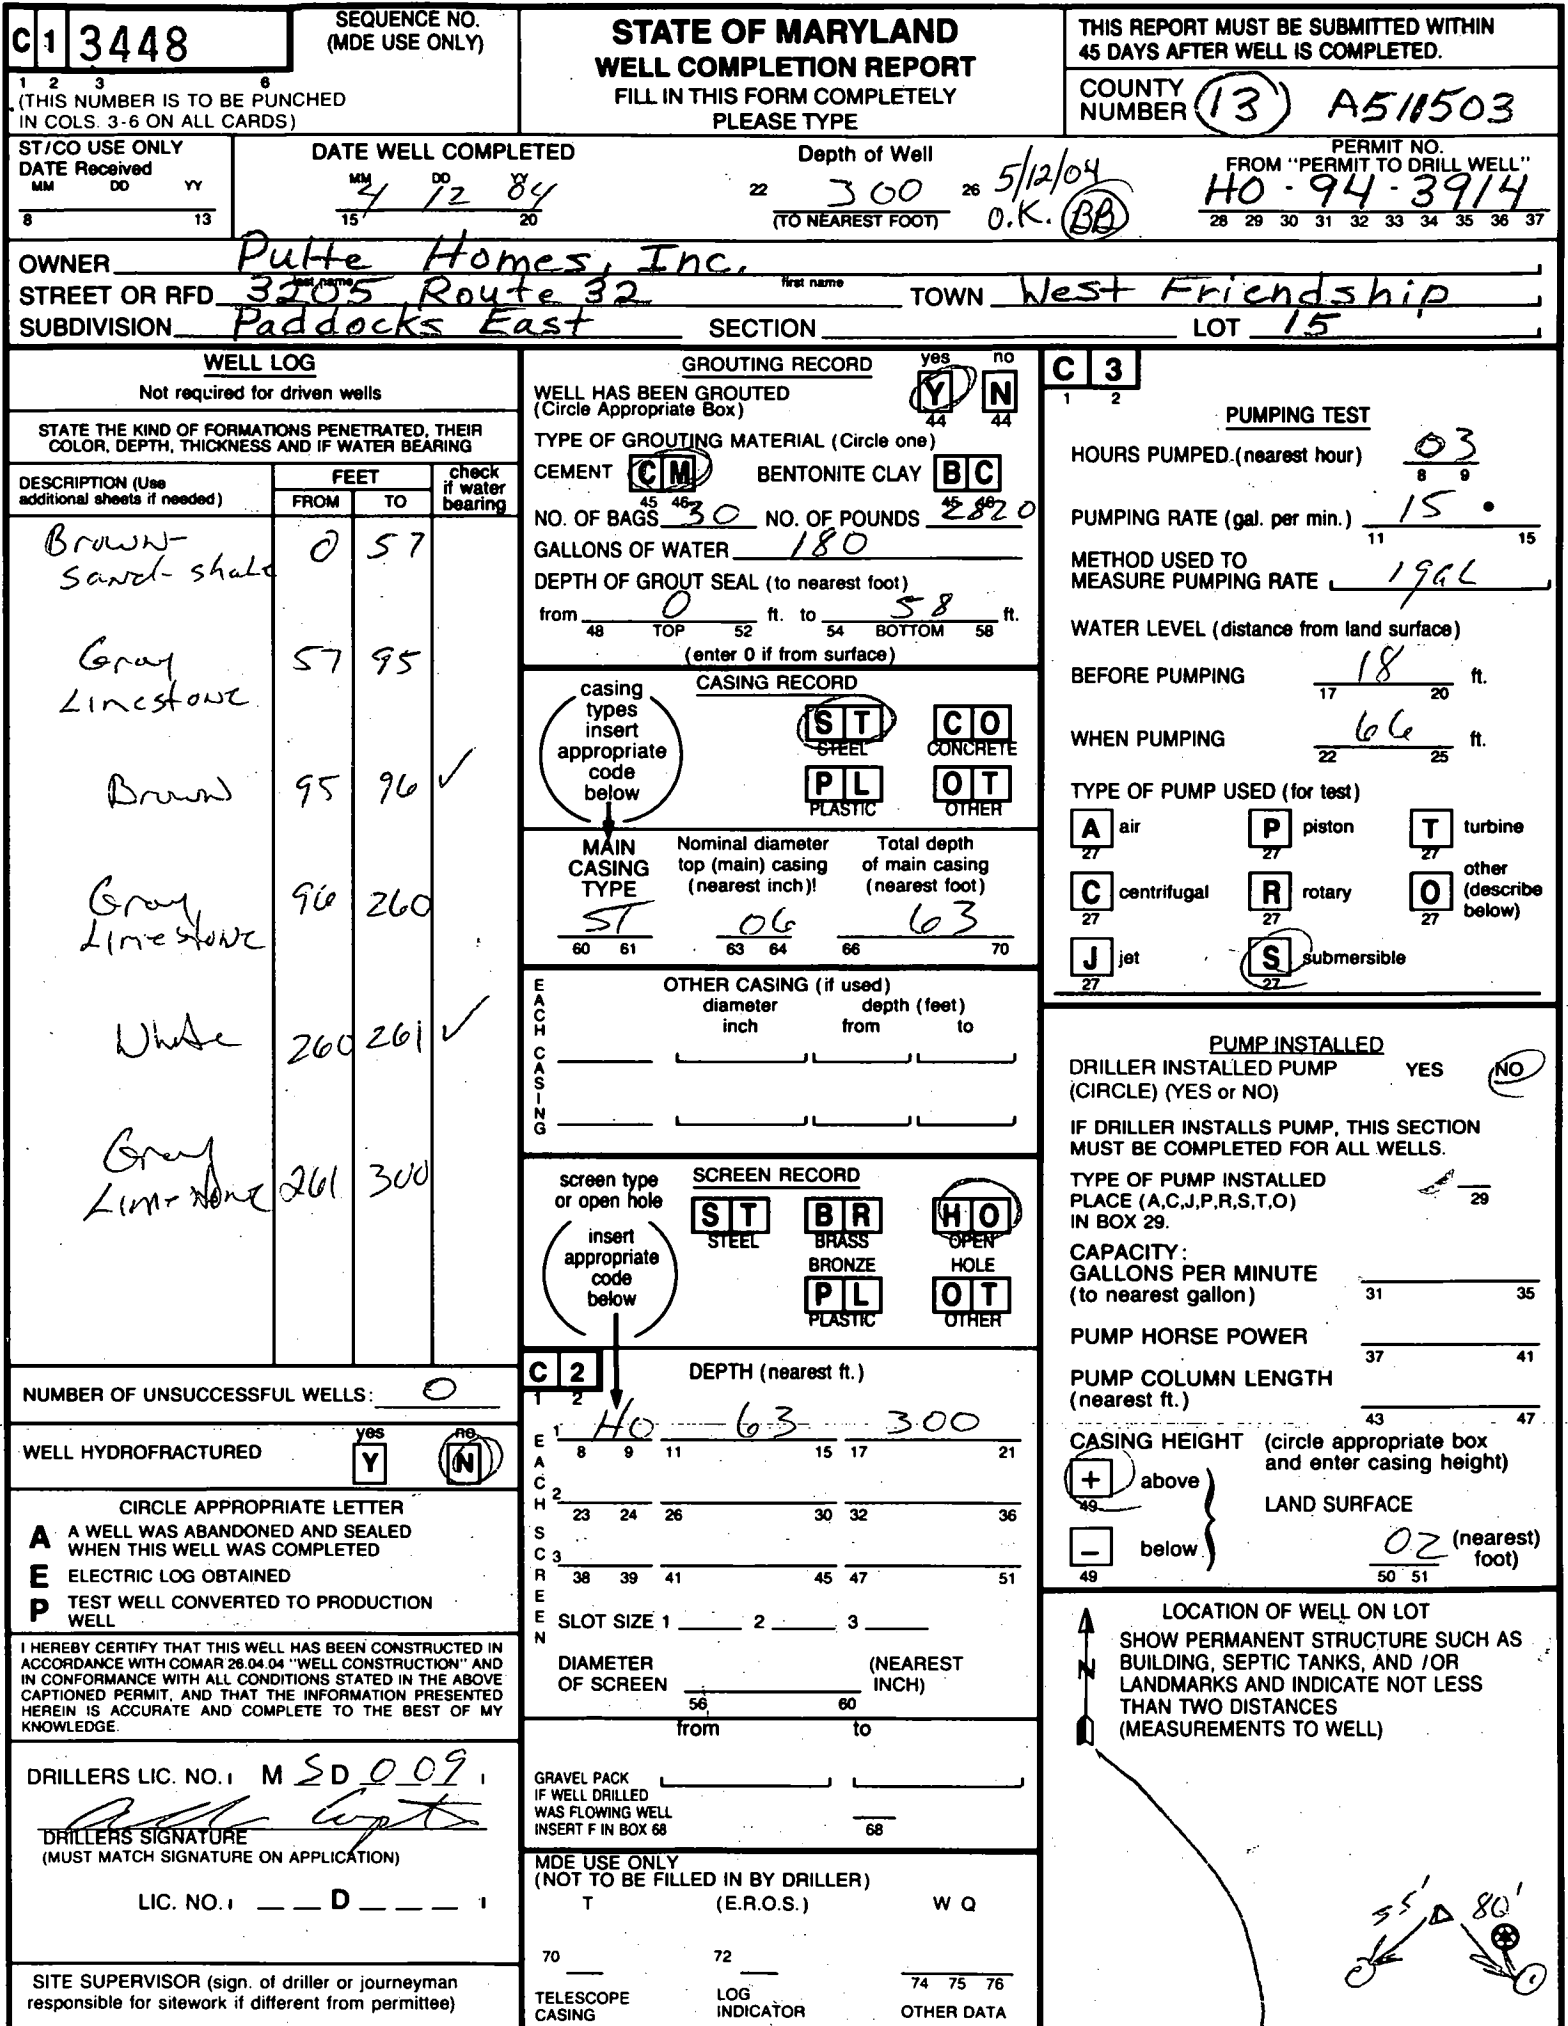 C 1 3448
1 2 3 6
(THIS NUMBER IS TO BE PUNCHED
IN COLS. 3-6 ON ALL CARDS)
SEQUENCE NO.
(MDE USE ONLY)
STATE OF MARYLAND
WELL COMPLETION REPORT
FILL IN THIS FORM COMPLETELY
PLEASE TYPE
THIS REPORT MUST BE SUBMITTED WITHIN
45 DAYS AFTER WELL IS COMPLETED.
COUNTY
NUMBER 13 A511503
ST/CO USE ONLY
DATE Received
MM DD YY
8 13
DATE WELL COMPLETED
MM DD YY
4 12 04
15 20
Depth of Well
22 300 26
(TO NEAREST FOOT)
5/12/04
O.K. BB
PERMIT NO.
FROM "PERMIT TO DRILL WELL"
HO - 94 - 3914
28 29 30 31 32 33 34 35 36 37
OWNER Pulte Homes, Inc.
last name first name
STREET OR RFD 3205 Route 32 TOWN West Friendship
SUBDIVISION Paddocks East SECTION LOT 15
WELL LOG
Not required for driven wells
STATE THE KIND OF FORMATIONS PENETRATED, THEIR
COLOR, DEPTH, THICKNESS AND IF WATER BEARING
DESCRIPTION (Use
additional sheets if needed)
FEET
FROM TO
check
if water
bearing
Brown- 0 57
Sand-shale
Gray 57 95
Limestone
Brown 95 96 ✓
Gray 96 260
Limestone
White 260 261 ✓
Gray
Limestone 261 300
NUMBER OF UNSUCCESSFUL WELLS: 0
WELL HYDROFRACTURED
yes no
Y N
CIRCLE APPROPRIATE LETTER
A A WELL WAS ABANDONED AND SEALED
WHEN THIS WELL WAS COMPLETED
E ELECTRIC LOG OBTAINED
P TEST WELL CONVERTED TO PRODUCTION
WELL
I HEREBY CERTIFY THAT THIS WELL HAS BEEN CONSTRUCTED IN
ACCORDANCE WITH COMAR 26.04.04 "WELL CONSTRUCTION" AND
IN CONFORMANCE WITH ALL CONDITIONS STATED IN THE ABOVE
CAPTIONED PERMIT, AND THAT THE INFORMATION PRESENTED
HEREIN IS ACCURATE AND COMPLETE TO THE BEST OF MY
KNOWLEDGE.
DRILLERS LIC. NO. M S D 0 0 9
DRILLERS SIGNATURE
(MUST MATCH SIGNATURE ON APPLICATION)
LIC. NO. D
SITE SUPERVISOR (sign. of driller or journeyman
responsible for sitework if different from permittee)
GROUTING RECORD
yes no
WELL HAS BEEN GROUTED
(Circle Appropriate Box)
Y N
44 44
TYPE OF GROUTING MATERIAL (Circle one)
CEMENT C M BENTONITE CLAY B C
45 46 45 46
NO. OF BAGS 30 NO. OF POUNDS 2820
GALLONS OF WATER 180
DEPTH OF GROUT SEAL (to nearest foot)
from 0 ft. to 58 ft.
48 TOP 52 54 BOTTOM 58
(enter 0 if from surface)
CASING RECORD
casing
types
insert
appropriate
code
below
S T C O
STEEL CONCRETE
P L O T
PLASTIC OTHER
MAIN
CASING
TYPE
Nominal diameter
top (main) casing
(nearest inch)!
Total depth
of main casing
(nearest foot)
ST 06 63
60 61 63 64 66 70
EACH CASING
OTHER CASING (if used)
diameter depth (feet)
inch from to
screen type
or open hole
insert
appropriate
code
below
SCREEN RECORD
S T B R H O
STEEL BRASS OPEN
BRONZE HOLE
P L O T
PLASTIC OTHER
C 2
1 2
DEPTH (nearest ft.)
EACH SCREEN
1 HO 63 300
8 9 11 15 17 21
2
23 24 26 30 32 36
3
38 39 41 45 47 51
SLOT SIZE 1 2 3
DIAMETER
OF SCREEN
(NEAREST
INCH)
56 60
from to
GRAVEL PACK
IF WELL DRILLED
WAS FLOWING WELL
INSERT F IN BOX 68
68
MDE USE ONLY
(NOT TO BE FILLED IN BY DRILLER)
T (E.R.O.S.) W Q
70 72
74 75 76
TELESCOPE
CASING
LOG
INDICATOR
OTHER DATA
C 3
1 2
PUMPING TEST
HOURS PUMPED (nearest hour) 03
8 9
PUMPING RATE (gal. per min.) 15 .
11 15
METHOD USED TO
MEASURE PUMPING RATE 1 gal
WATER LEVEL (distance from land surface)
BEFORE PUMPING 18 ft.
17 20
WHEN PUMPING 66 ft.
22 25
TYPE OF PUMP USED (for test)
A air P piston T turbine
27 27 27
C centrifugal R rotary O other
(describe
below)
27 27 27
J jet S submersible
27 27
PUMP INSTALLED
DRILLER INSTALLED PUMP YES NO
(CIRCLE) (YES or NO)
IF DRILLER INSTALLS PUMP, THIS SECTION
MUST BE COMPLETED FOR ALL WELLS.
TYPE OF PUMP INSTALLED
PLACE (A,C,J,P,R,S,T,O)
IN BOX 29.
29
CAPACITY:
GALLONS PER MINUTE
(to nearest gallon)
31 35
PUMP HORSE POWER
37 41
PUMP COLUMN LENGTH
(nearest ft.)
43 47
CASING HEIGHT (circle appropriate box
and enter casing height)
+ above
49
LAND SURFACE
− below
49
02 (nearest)
foot)
50 51
LOCATION OF WELL ON LOT
SHOW PERMANENT STRUCTURE SUCH AS
BUILDING, SEPTIC TANKS, AND /OR
LANDMARKS AND INDICATE NOT LESS
THAN TWO DISTANCES
(MEASUREMENTS TO WELL)
N
55' 80'